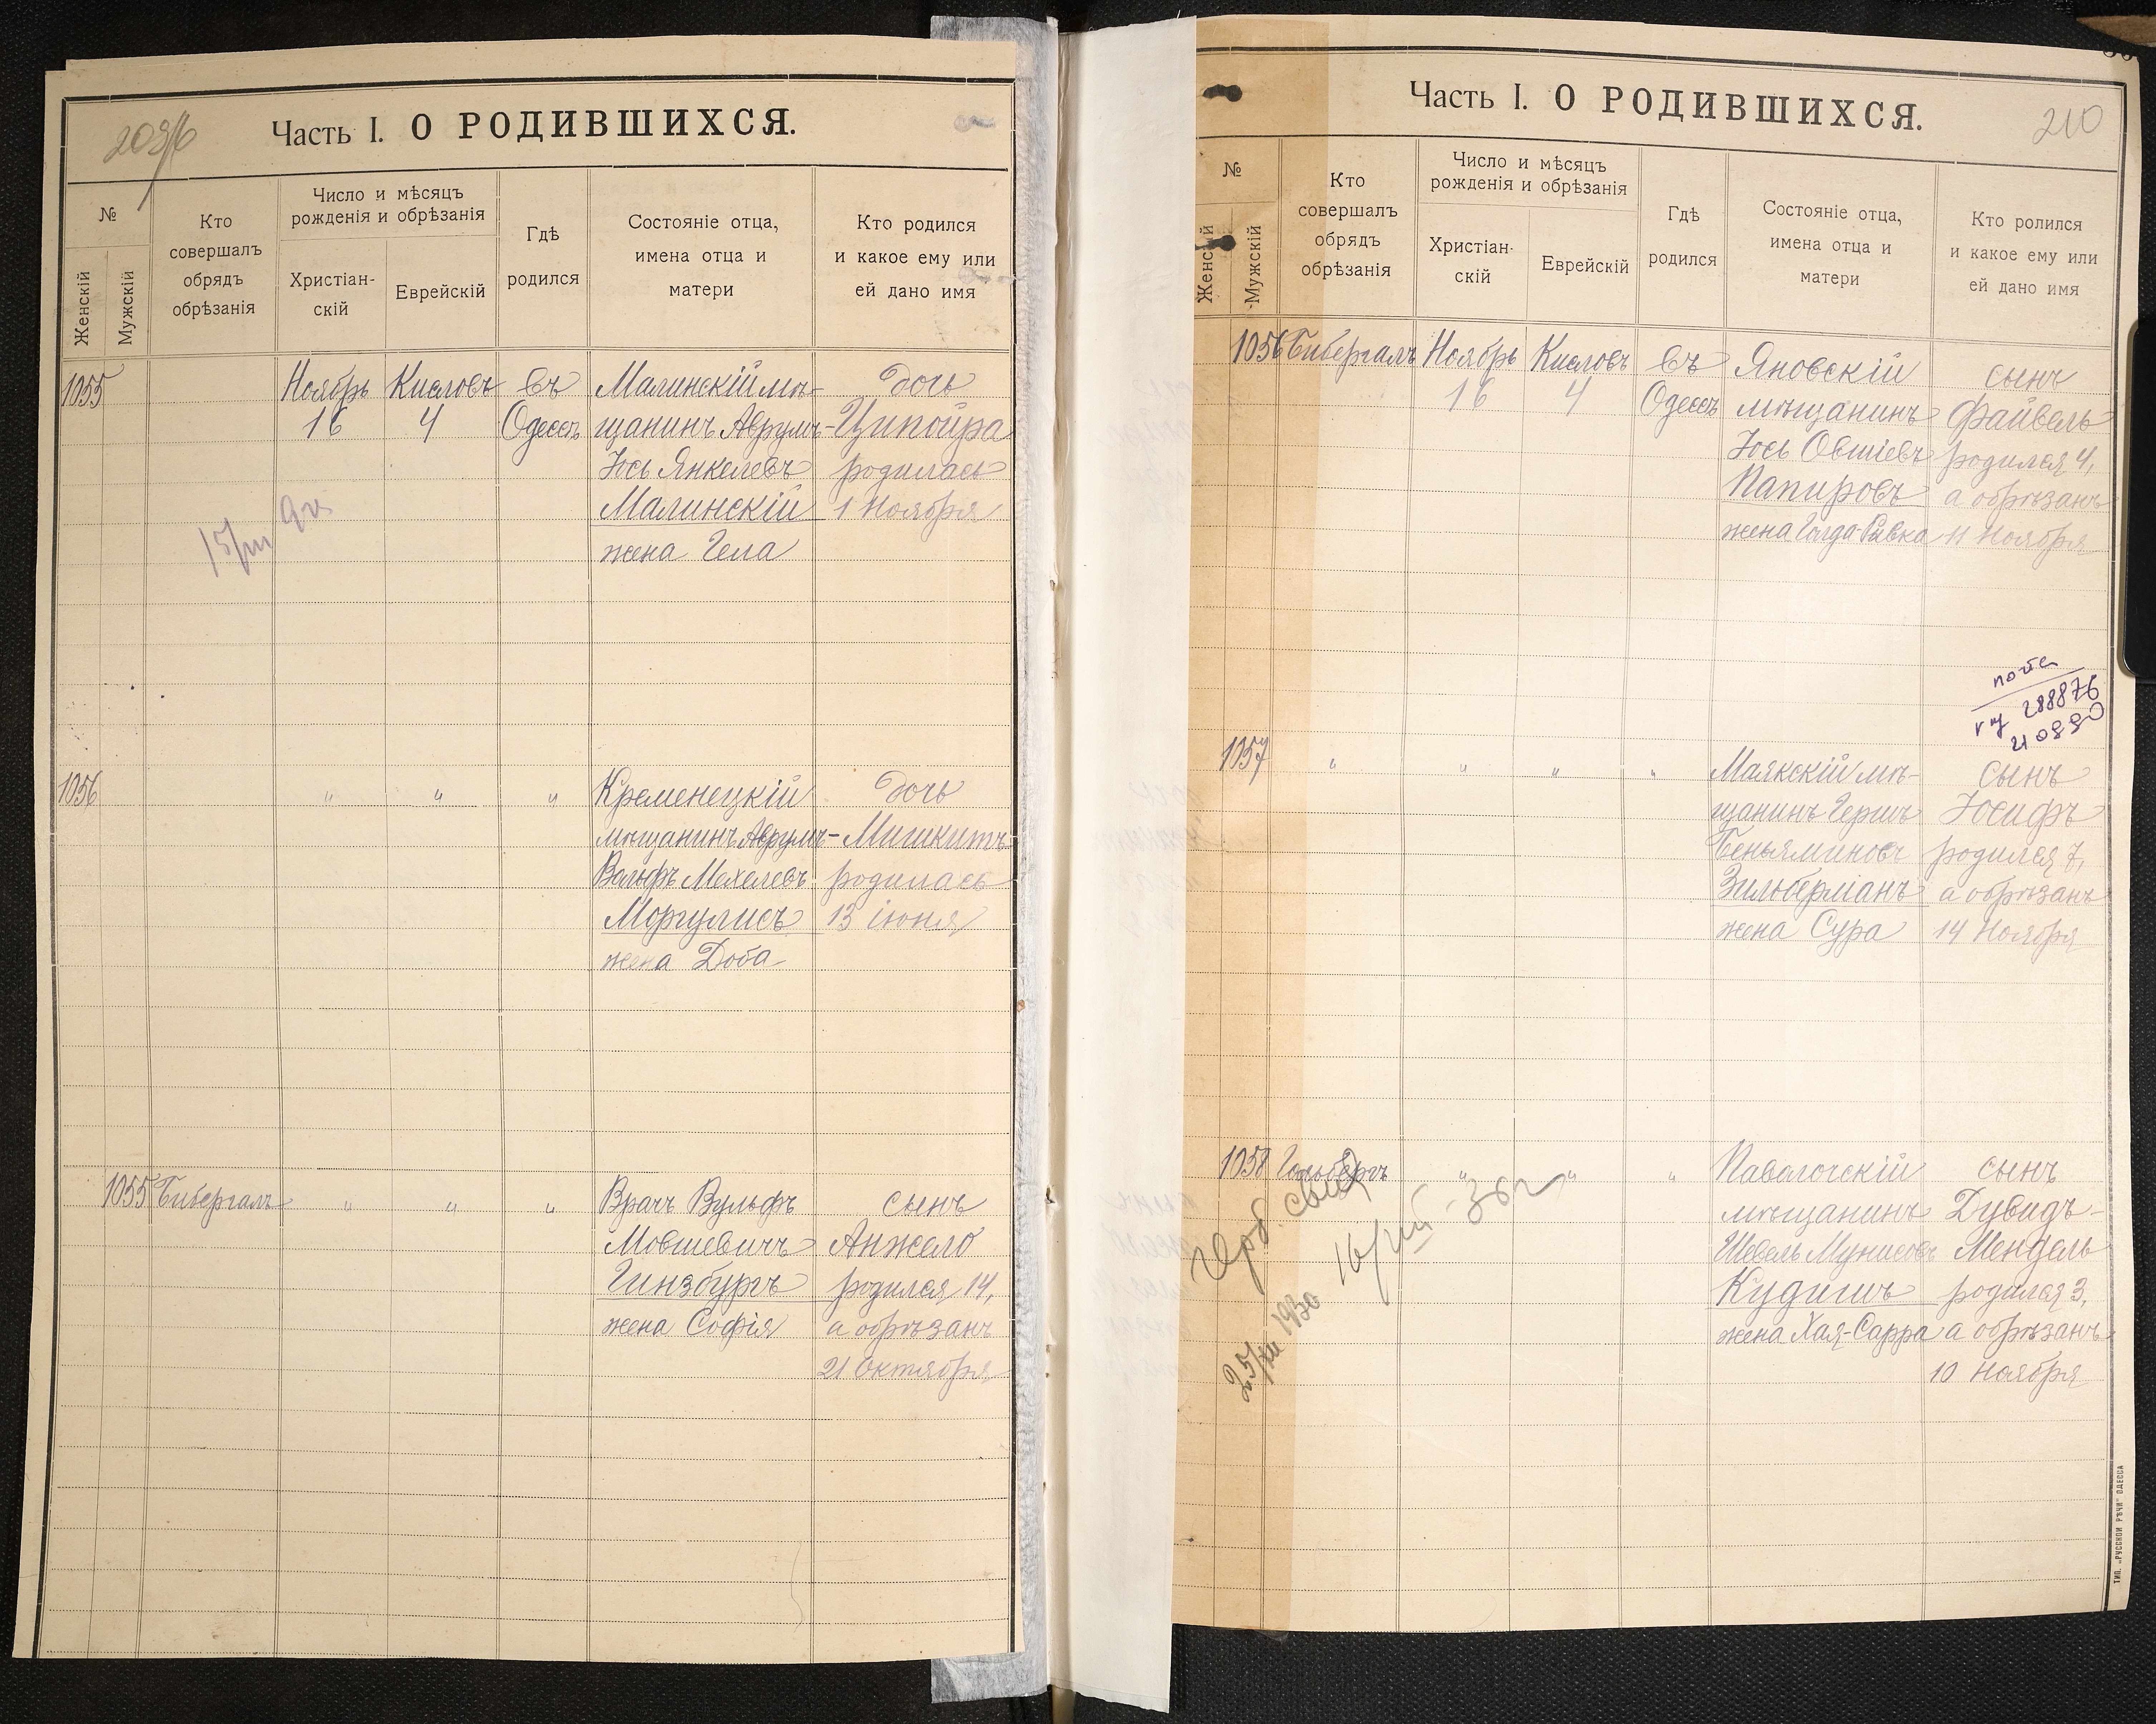 Часть I. О РОДИВШИХСЯ.
№
Женскій
Мужскій
Кто
совершалъ
обрядъ
обрѣзанія
Число и мѣсяцъ
рожденія и обрѣзанія
Христіан-
скій
Еврейскій
Гдѣ
родился
Состояніе отца,
имена отца и
матери
Кто родился
и какое ему или
ей дано имя
1055
Ноябрь
16
Кисловъ
4
Въ
Одессѣ
Малинскій мѣ-
щанинъ Аврумъ-
Іось Янкелевъ
Малинскій
жена Гела
дочь
Ципойра
родилась
1 Ноября
15/III
1056
"
"
"
Кременецкій
мѣщанинъ Аврумъ-
Вольфъ Мехелевъ
Моргулисъ
жена Доба
дочь
Мишкитъ
родилась
13 іюня
1055
Бибергалъ
"
"
"
Врачъ Вульфъ
Мовшевичъ
Гинзбургъ
жена Софія
сынъ
Анжело
родился 14,
а обрѣзанъ
21 Октября
Часть I. О РОДИВШИХСЯ.
210
№
Женскій
Мужскій
Кто
совершалъ
обрядъ
обрѣзанія
Число и мѣсяцъ
рожденія и обрѣзанія
Христіан-
скій
Еврейскій
Гдѣ
родился
Состояніе отца,
имена отца и
матери
Кто ролился
и какое ему или
ей дано имя
1056
Бибергалъ
Ноябрь
16
Кисловъ
4
Въ
Одессѣ
Яновскій
мѣщанинъ
Іось Овшіевъ
Папировъ
жена Голда-Ривка
сынъ
Файвель
родился 4,
а обрѣзанъ
11 Ноября
288876
1057
"
"
"
"
Маякскій мѣ-
щанинъ Гершъ
Беньяминовъ
Зильберманъ
жена Сура
сынъ
Іосифъ
родился 7,
а обрѣзанъ
14 Ноября
1058
Гольбергъ
"
"
"
Паволочскій
мѣщанинъ
Шевель Мунисовъ
Кудишъ
жена Хая-Сарра
сынъ
Дувидъ-
Мендель
родился 3,
а обрѣзанъ
10 Ноября
25/XII 1930
ТИП. „РУССКОЙ РѢЧИ" ОДЕССА